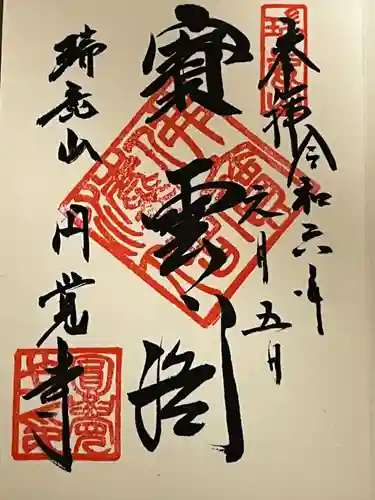 奉拝 令和六年 元月五日
寳雲閣
瑞鹿山 円覚寺